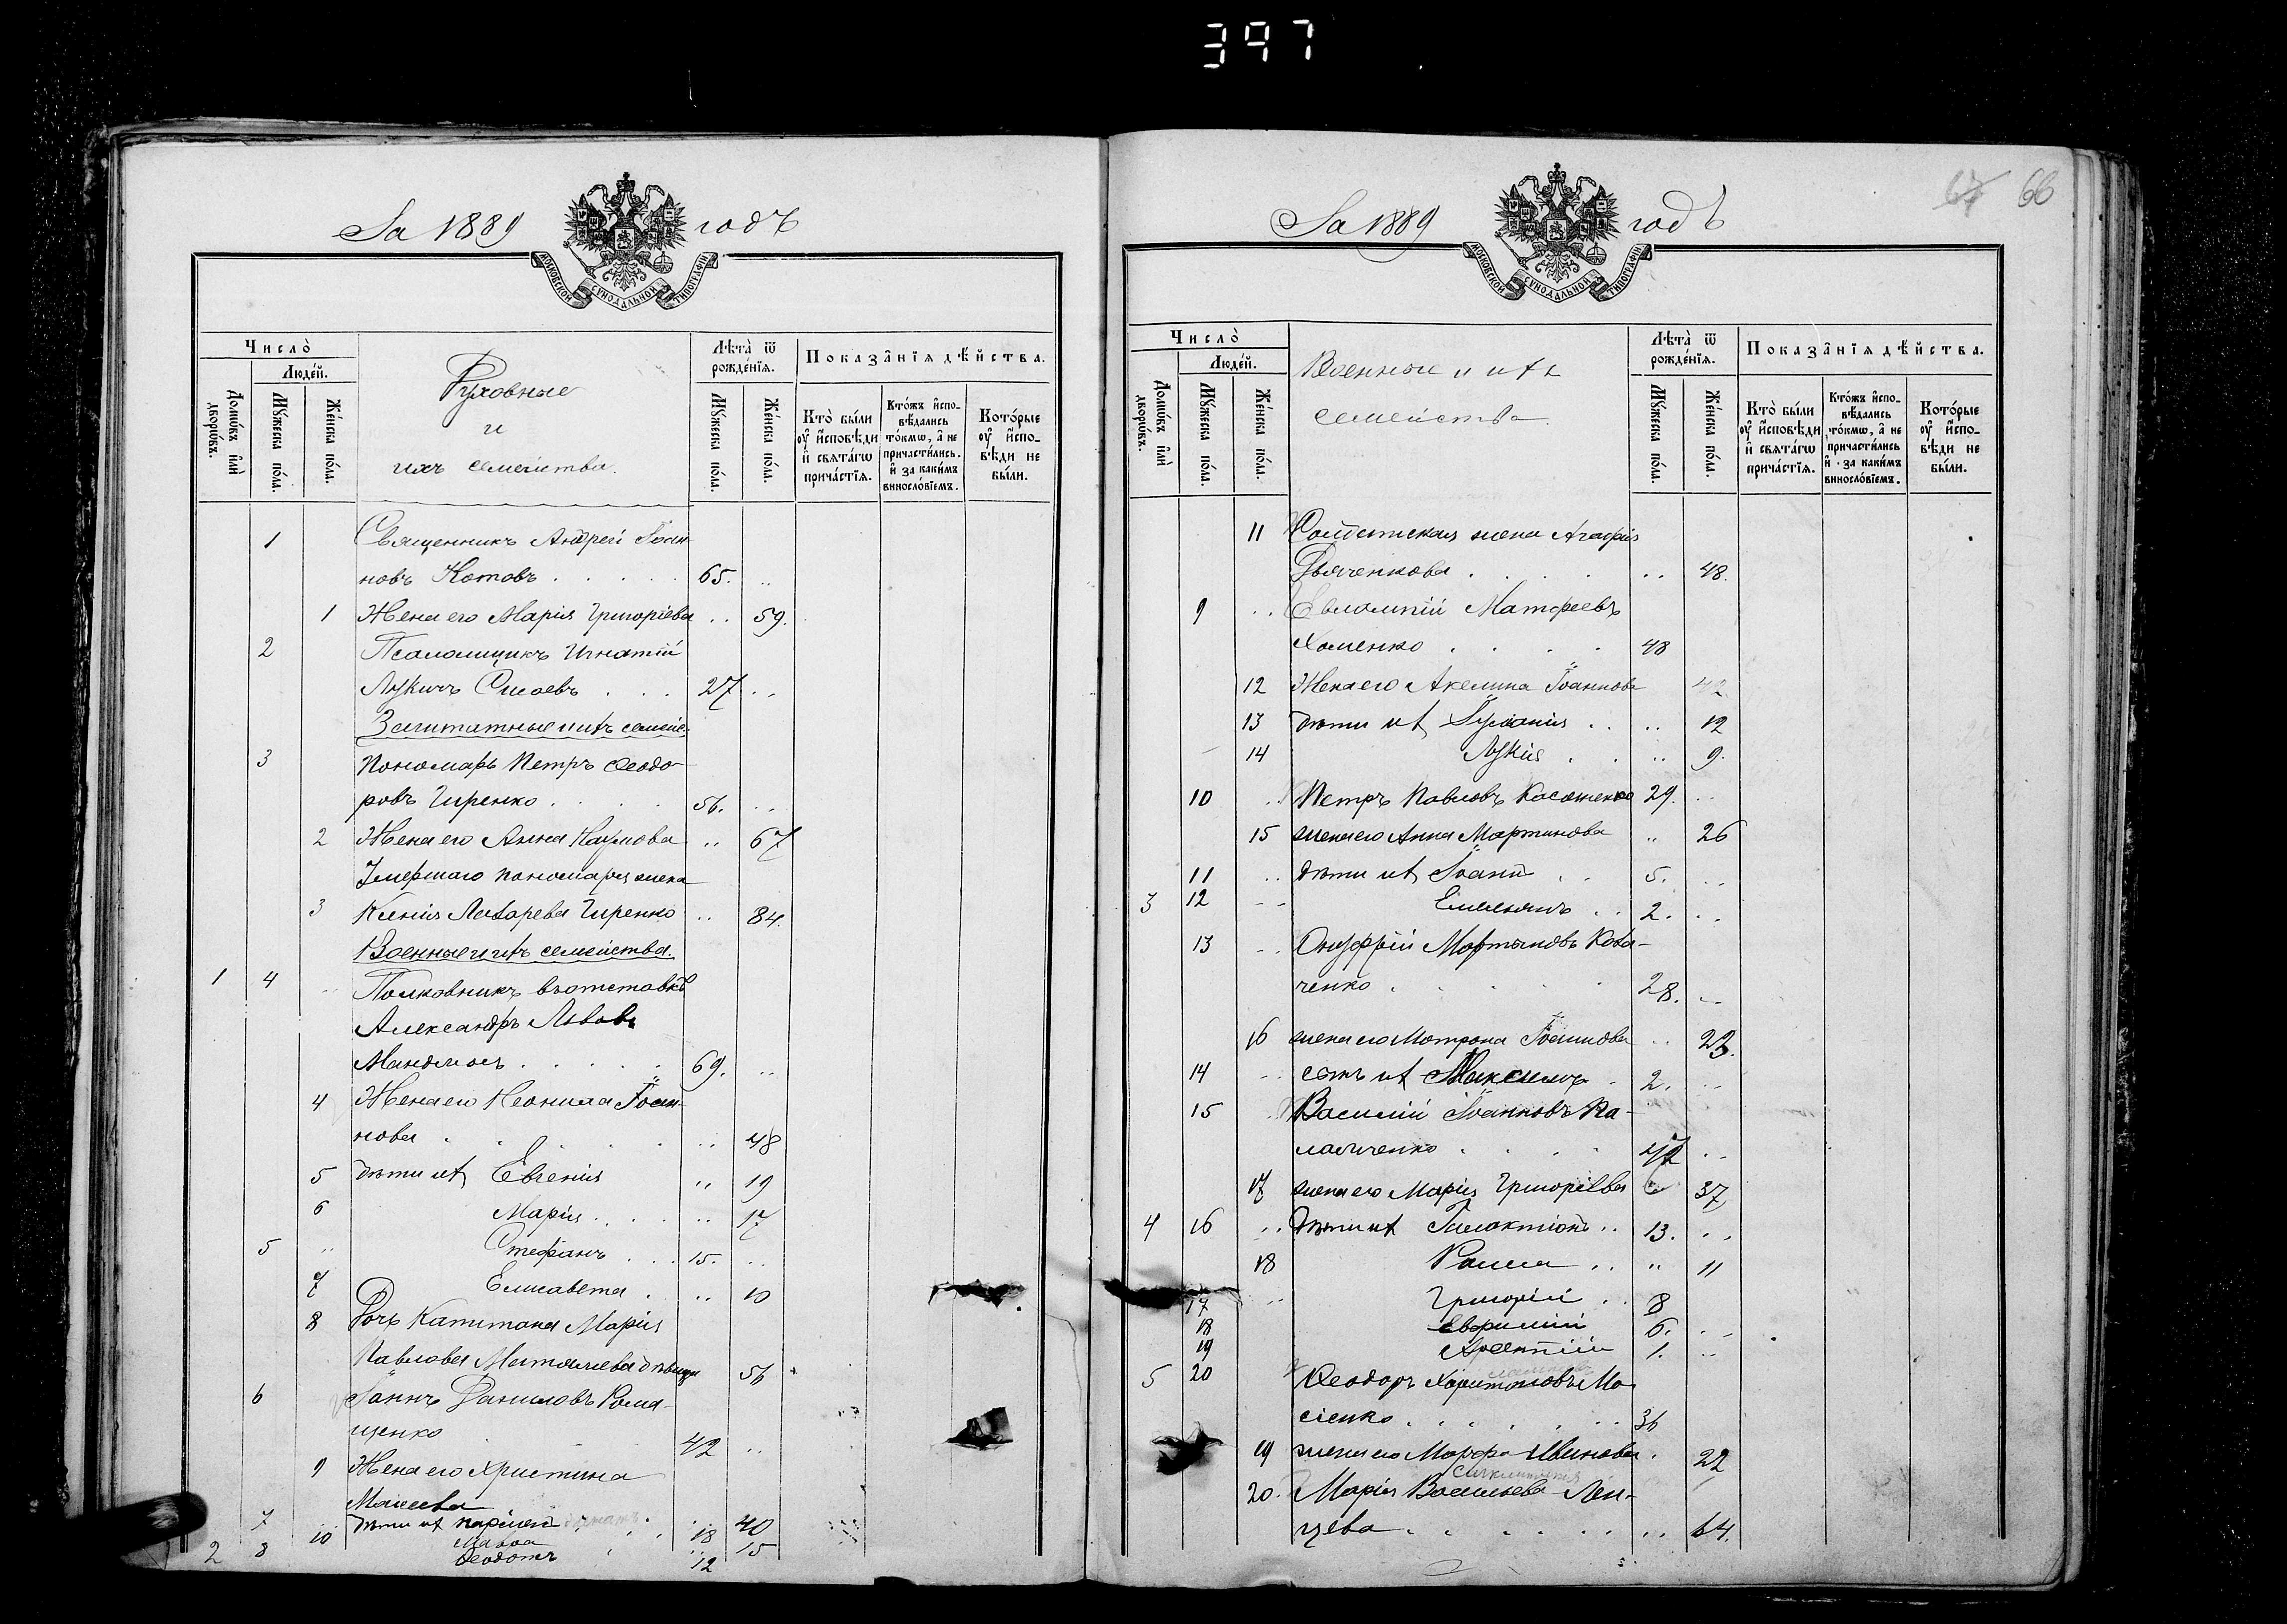 397
За 1889 годъ
МОСКОВСКОЙ СѴНОДАЛЬНОЙ ТИПОГРАФІИ
Число̀
Люде́й.
Домѡ́въ и҆лѝ дворѡ́въ.
Мꙋ́жеска по́ла.
Же́нска по́ла.
Духовные
и
ихъ семейства.
Лѣта̀ ѿ рожде́нїѧ.
Мꙋ́жеска по́ла.
Же́нска по́ла.
Показа̂нїѧ дѣ́йства.
Кто̀ бы́ли оу҆ и҆сповѣ́ди и҆ свѧта́гѡ прича́стїѧ.
Кто́жъ и҆спо-вѣ́дались то́кмѡ, а҆ не причасти́лись. и҆ за каки́мъ виносло́вїемъ.
Кото́рые оу҆ и҆спо-вѣ́ди не бы́ли.
1 Священникъ Андрей Іоан
новъ Котовъ . . . . 65. ..
1 Жена его Марія Григоріева .. 59.
2 Псаломщикъ Игнатій
Лукичъ Сисоевъ . . . 27 ..
Заштатные и ихъ семейс.
3 Пономарь Петръ Ѳеодо
ровъ Гиренко . . . . 56. ..
2 Жена его Анна Наумова .. 67
Умершаго пономаря жена
3 Ксенія Лазарева Гиренко .. 84.
Военные и ихъ семейства.
1 4 Полковникъ въ отставкѣ
Александръ Львовъ
69. ..
4 Жена его Неонила Іоан-
нова . . . . .. 48
5 дѣти ихъ Евгенія .. 19
6 Марія . . . .. 17
5 .. Стефанъ . . . 15. ..
7 Елисавета . .. 10
8 Дочь Капитана Марія
Павлова дѣвица 56
6 Іоаннъ Даниловъ Рома
щенко 42 ..
9 Жена его Христина
Моисеева 40
7 дѣти ихъ 18
10 Мавра .. 15
2 8 Ѳеодотъ 12
67 66
За 1889 годъ
МОСКОВСКОЙ СѴНОДАЛЬНОЙ ТИПОГРАФІИ
Число̀
Люде́й.
Домѡ́въ и҆лѝ дворѡ́въ.
Мꙋ́жеска по́ла.
Же́нска по́ла.
Военные и ихъ
семейства.
Лѣта̀ ѿ рожде́нїѧ.
Мꙋ́жеска по́ла.
Же́нска по́ла.
Показа̂нїѧ дѣ́йства.
Кто̀ бы́ли оу҆ и҆сповѣ́ди и҆ свѧта́гѡ прича́стїѧ.
Кто́жъ и҆спо-вѣ́дались то́кмѡ, а҆ не причасти́лись и҆ за каки́мъ виносло́вїемъ.
Кото́рые оу҆ и҆спо-вѣ́ди не бы́ли.
11 Солдатская жена Агафія
Дьяченкова . . . . .. 48.
9 .. Евлампій Матфеевъ
Хоменко . . . . 48
12 Жена его Акелина Іоаннова 42
13 дѣти ихъ . . .. 12
14 Лукія . . .. 9.
10 .. Петръ Павловъ 29. ..
15 жена его Анна Мартинова .. 26
11 .. дѣти ихъ Іоаннъ . . 5. ..
3 12 .. Емельянъ . . 2. ..
13 .. Онуфрій Мартыновъ Кова-
ченко . . . . . 28. ..
16 жена его Матрона Іоаннова .. 23.
14 .. сынъ ихъ Максимъ . 2. ..
15 .. Василій Іоанновъ Ка-
лашченко . . . . 42 ..
17 жена его Марія Григоріева 37
4 16 .. дѣти ихъ Галактіонъ .. 13. ..
18 Раиса .. .. 11
17 .. Григорій .. 8
18 Евфимій 6. ..
19 1. ..
5 20 Ѳеодоръ Харитоновъ Мо
сіенко . . . . . .. 36
19 жена его Марфа Иванова . 22
20. Марія Васильева Лен-
цева . . . . . . .. 64.